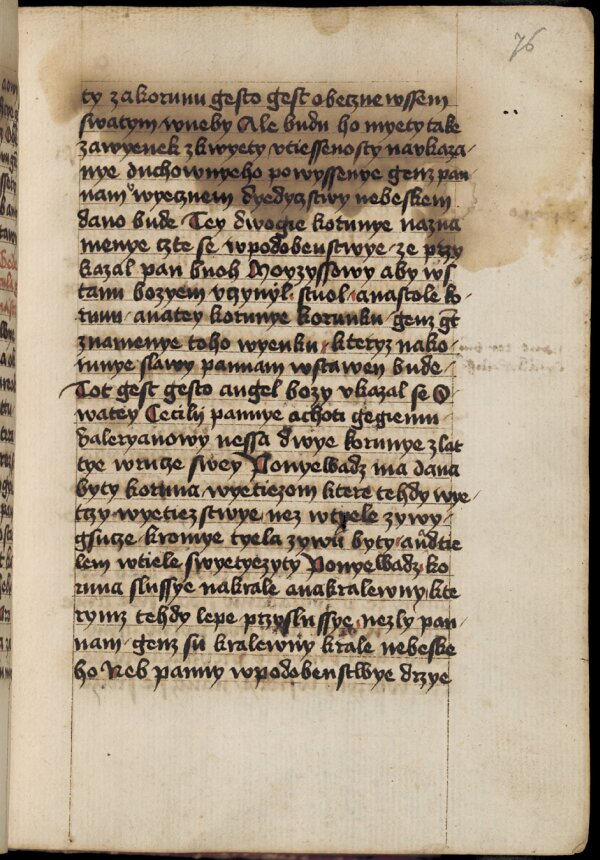 76
ty zakorunu gesto gest obeczne wssem
swatym wneby Ale budu ho myety take
zawyenek zkwyety vtiessenosty naukaza-
nye duchownyeho powyssenye genz pan
nam wyecznem dyedyczstwy nebeskem
dano bude Tey dwogie korunye nazna
menye czte se wpodobenstwye ze przy
kazal pan buoh Moyzyssowy aby w s
tanu bozyem vczynyl stuol anastole ko
runu anatey korunye korunku genz gt
znamenye toho wyenku kteryz nako
runye slawy pannam wstawen bude
Tot gest gesto angel bozy vkazal se S
watey Cecilij pannye achoti gegiemu
valeryanowy nessa dwye korunye zlat
tye wrucze swey Ponyewadz ma dana
byty koruna wyetiezom ktere tehdy wye
tczy wyetiezstwye nez wtyele zywy
gsucze kromye tyela zywu byty audtie
lem wtiele swyetyezyty Ponyewadz ko
runa slussye nakrale anakralewny kte
rymz tehdy lepe przyslussye nezly pan
nam genz su kralewny krale nebeske
ho Neb panny wpodobenstwye drzye